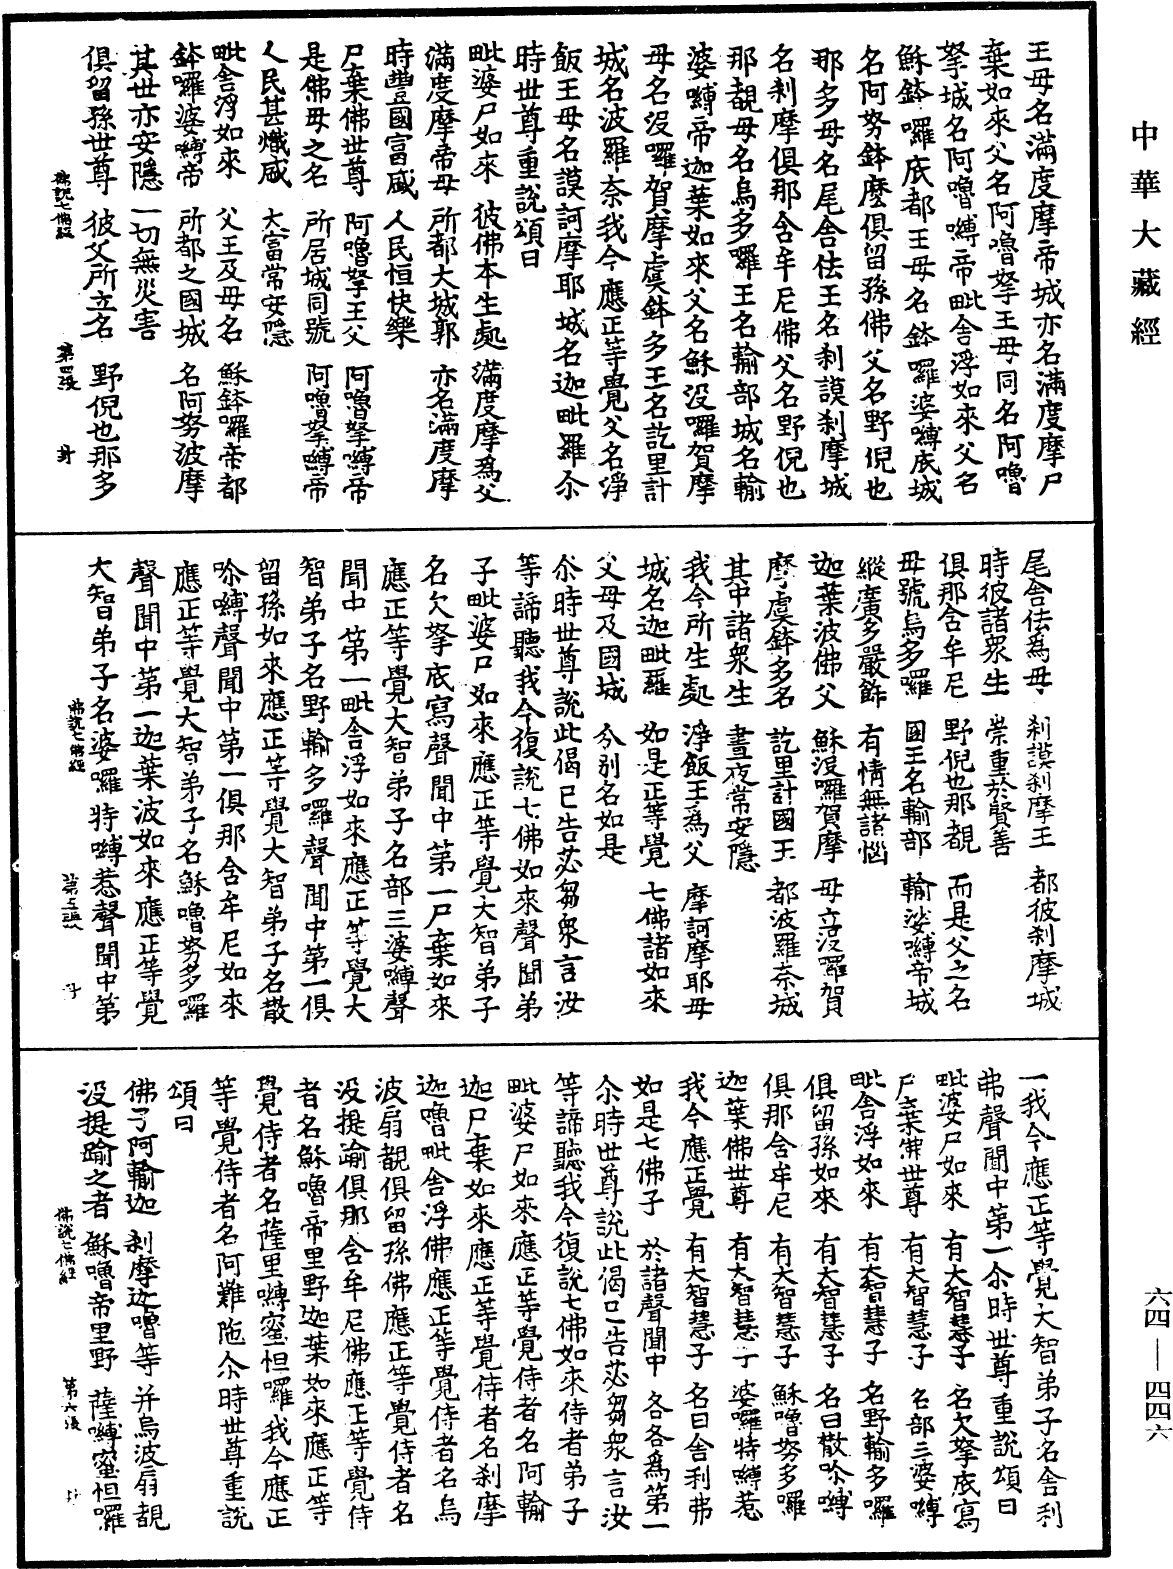 中華大藏經
王母名滿度摩帝城亦名滿度摩尸
棄如來父名阿嚕拏王母同名阿嚕
拏城名阿嚕嚩帝毗舍浮如來父名
穌鉢囉底都王母名鉢囉婆嚩底城
名阿努鉢麼俱留孫佛父名野倪也
那多母名尾舍佉王名刹謨刹摩城
名刹摩俱那含牟尼佛父名野倪也
那覩母名烏多囉王名輸部城名輸
婆嚩帝迦葉如來父名穌没囉賀摩
母名没囉賀摩虞鉢多王名訖里計
城名波羅奈我今應正等覺父名淨
飯王母名謨訶摩耶城名迦毗羅尒
時世尊重說頌曰
毗婆尸如來 彼佛本生處 滿度摩為父
滿度摩帝母 所都大城郭 亦名滿度摩
時豐國富盛 人民恒快樂
尸棄佛世尊 阿嚕拏王父 阿嚕拏嚩帝
是佛母之名 所居城同號 阿嚕拏嚩帝
人民甚熾盛 大富常安隱
毗舍浮如來 父王及母名 穌鉢囉帝都
鉢囉婆嚩帝 所都之國城 名阿努波摩
其世亦安隱 一切無災害
俱留孫世尊 彼父所立名 野倪也那多
佛說七佛經 第四張
尾舍佉為母 刹謨刹摩王 都彼刹摩城
時彼諸眾生 崇重於賢善
俱那含牟尼 野倪也那覩 而是父之名
母號烏多囉 國王名輸部 輸婆嚩帝城
縱廣多嚴飾 有情無諸惱
迦葉波佛父 穌没囉賀摩 母立没囉賀
摩虞鉢多名 訖里計國王 都波羅奈城
其中諸眾生 晝夜常安隱
我今所生處 淨飯王為父 摩訶摩耶母
城名迦毗羅 如是正等覺 七佛諸如來
父母及國城 分別名如是
尒時世尊說此偈已告苾芻眾言汝
等諦聽我今復說七佛如來聲聞弟
子毗婆尸如來應正等覺大智弟子
名欠拏底寫聲聞中第一尸棄如來
應正等覺大智弟子名部三婆嚩聲
聞中第一毗舍浮如來應正等覺大
智弟子名野輸多囉聲聞中第一俱
留孫如來應正等覺大智弟子名散
吟嚩聲聞中第一俱那含牟尼如來
應正等覺大智弟子名穌嚕努多囉
聲聞中第一迦葉波如來應正等覺
大智弟子名婆囉特嚩惹聲聞中第
佛說七佛經 第五張
一我今應正等覺大智弟子名舍利
弗聲聞中第一尒時世尊重說頌曰
毗婆尸如來 有大智慧子 名欠拏底寫
尸棄佛世尊 有大智慧子 名部三婆嚩
毗舍浮如來 有大智慧子 名野輸多囉
俱留孫如來 有大智慧子 名曰散吟嚩
俱那含牟尼 有大智慧子 穌嚕努多囉
迦葉佛世尊 有大智慧子 婆囉特嚩惹
我今應正覺 有大智慧子 名曰舍利弗
如是七佛子 於諸聲聞中 各各為第一
尒時世尊說此偈已告苾芻眾言汝
等諦聽我今復說七佛如來侍者弟子
毗婆尸如來應正等覺侍者名阿輸
迦尸棄如來應正等覺侍者名刹摩
迦嚕毗舍浮佛應正等覺侍者名烏
波扇覩俱留孫佛應正等覺侍者名
没提踰俱那含牟尼佛應正等覺侍
者名穌嚕帝里野迦葉如來應正等
覺侍者名薩里嚩蜜怛囉我今應正
等覺侍者名阿難陁尒時世尊重說
頌曰
佛子阿輸迦 刹摩迦嚕等 并烏波扇覩
没提踰之者 穌嚕帝里野 薩嚩蜜怛囉
佛說七佛經 第六張
六四—四四六